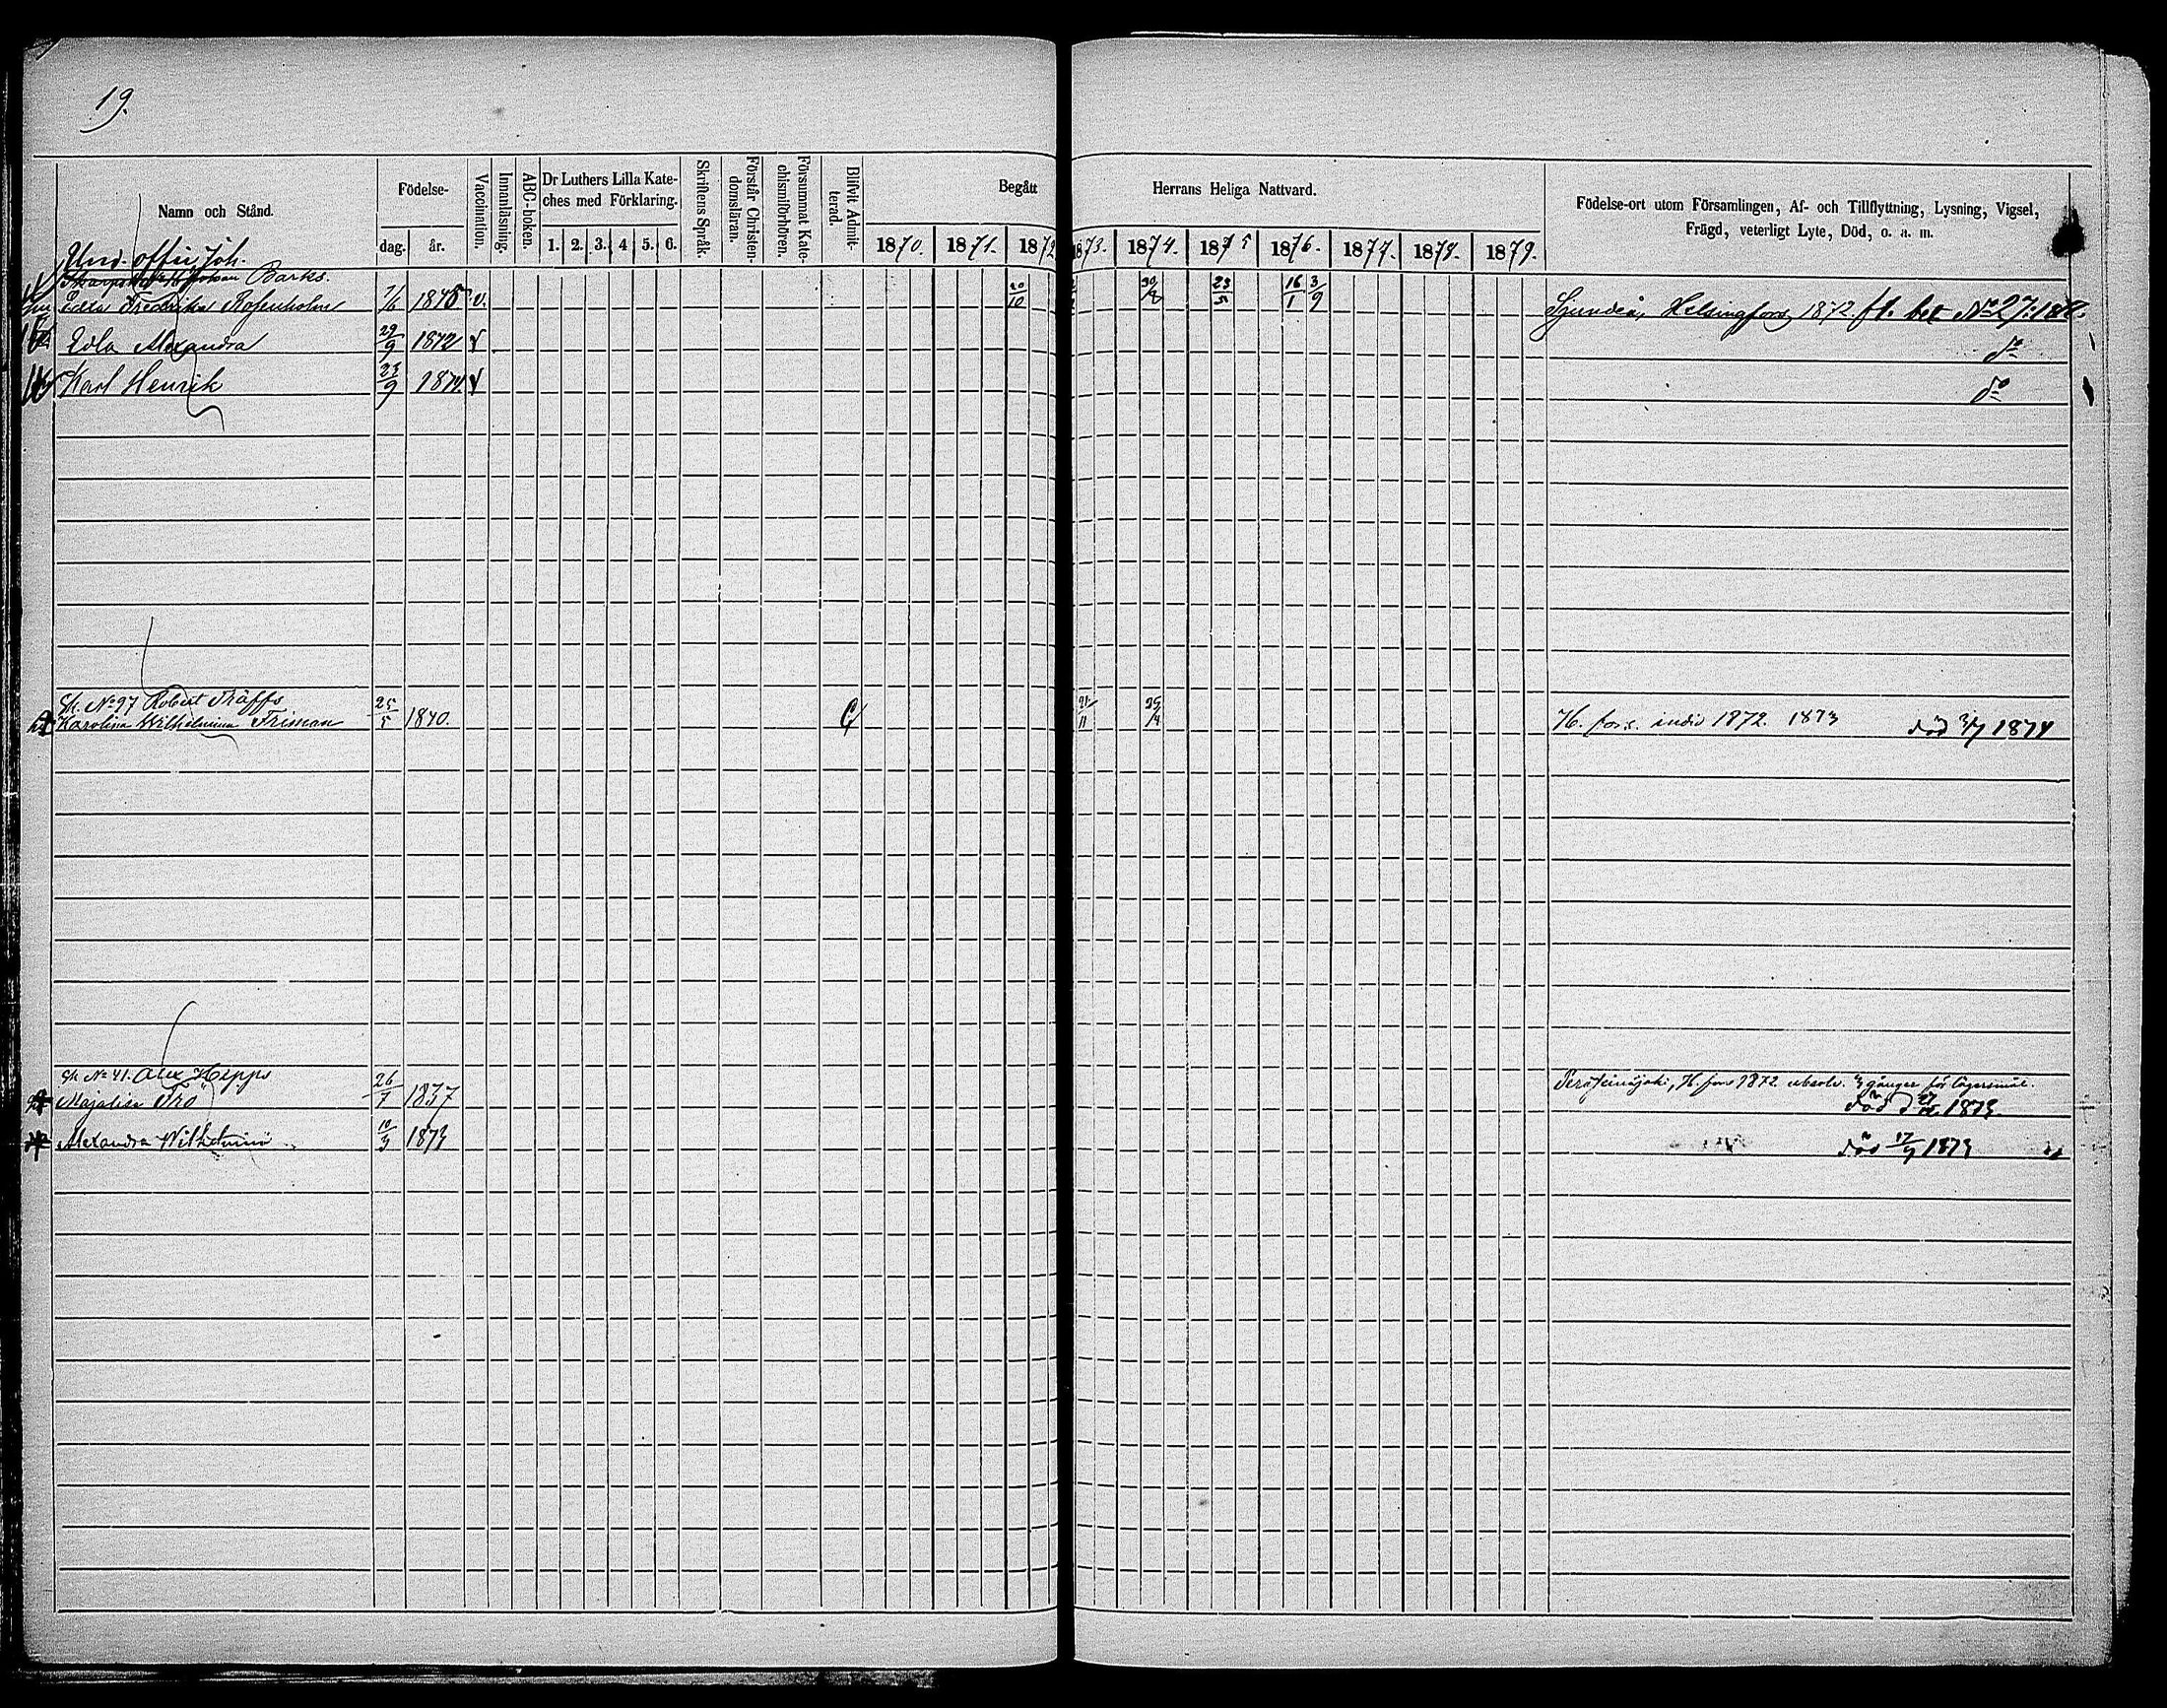 19.
Namn och Stånd.
Födelse-
dag.
år.
Vaccination.
Innanläsning.
ABC-boken.
Dr Luthers Lilla Kate-
ches med Förklaring.
1. 2. 3. 4 5. 6.
Skriftens Språk.
Förstår Christen-
domsläran.
Försummat Kate-
chismiförhören.
Blifvit Admit-
terad.
Begått Herrans Heliga Nattvard.
1870. 1871. 1872 1873. 1874. 1875 1876. 1877. 1878. 1879.
Födelse-ort utom Församlingen, Af- och Tillflyttning, Lysning, Vigsel,
Frägd, veterligt Lyte, Död, o. a. m.
Und. offic. Joh.
Johan Barks.
Edla Fredrika Rosenholm 7/6 1845 v. 20/10 23/5 16/1 3/9 Sjundeå, Helsingfors 1872. fl. bet No 27: 
Edla Alexandra 29/9 1872 v do
Karl Henrik 23/9 1874 v do
No 97 Robert Träffs
Karolina Wilhelmina Friman 25/5 1840. H. fors. 1872. 1873 död 1874
No 41. Alex Hepps
Majalisa Frö 26/7 1837 H. fors 1872 gånger för lägersmål.
död 1873
Alexandra Wilhelmina 10/3 1873 död 17/7 1873